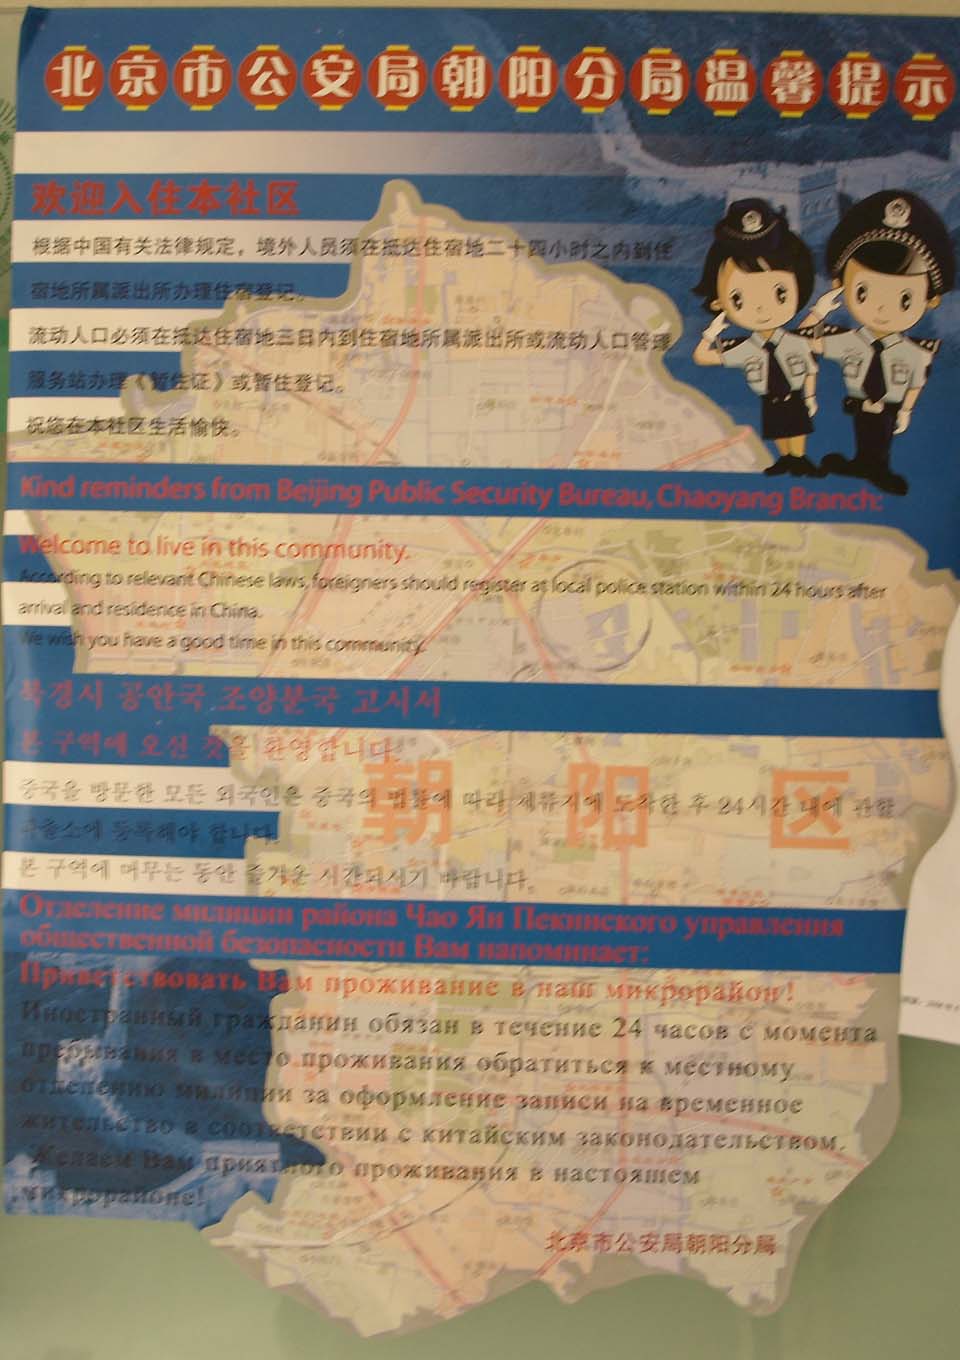 北京市公安局朝阳分局温馨提示
欢迎入住本社区
根据中国有关法律规定，境外人员须在抵达住宿地二十四小时之内到住
宿地所属派出所办理住宿登记。
流动人口必须在抵达住宿地三日内到住宿地所属派出所或流动人口管理
服务站办理《暂住证》或暂住登记。
祝您在本社区生活愉快。
Kind reminders from Beijing Public Security Bureau, Chaoyang Branch:
Welcome to live in this community.
According to relevant Chinese laws, foreigners should register at local police station within 24 hours after
arrival and residence in China.
We wish you have a good time in this community.
북경시 공안국 조양분국 고시서
본 구역에 오신 것을 환영합니다.
중국을 방문한 모든 외국인은 중국의 법률에 따라 체류지에 도착한 후 24시간 내에 관할
파출소에 등록해야 합니다.
본 구역에 머무는 동안 즐거운 시간되시기 바랍니다.
朝阳区
Отделение милиции района Чао Ян Пекинского управления
общественной безопасности Вам напоминает:
Приветствовать Вам проживание в наш микрорайон!
Иностранный гражданин обязан в течение 24 часов с момента
пребывания в место проживания обратиться к местному
отделению милиции за оформление записи на временное
жительство в соответствии с китайским законодательством.
Желаем Вам приятного проживания в настоящем
микрорайоне!
北京市公安局朝阳分局